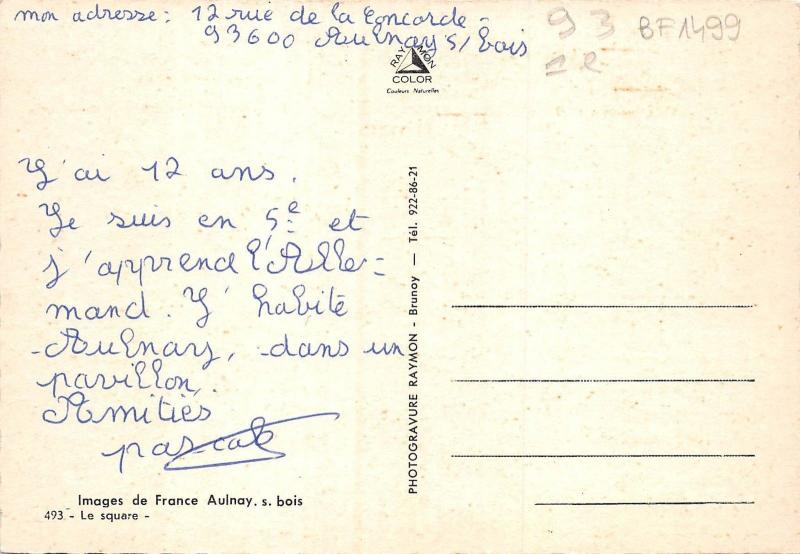 mon adresse : 12 rue de la Concorde -
93600 Aulnay s/bois
93 BF1499
RAYMON
COLOR
Couleurs Naturelles
J'ai 12 ans.
Je suis en 5e et
j'apprend l'Alle=
mand. J'habite
Aulnay, dans un
pavillon,
Amitiés
pascale
Images de France Aulnay. s. bois
493 - Le square -
PHOTOGRAVURE RAYMON - Brunoy — Tél. 922-86-21